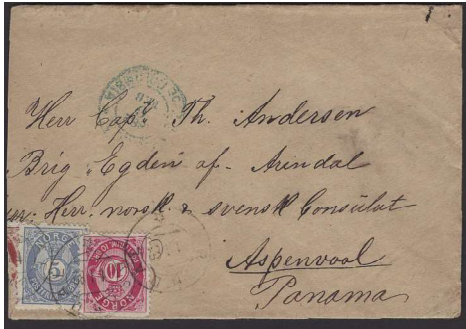 Herr Capt Th. Andersen
Brig "Egden" af Arendal
Herr norsk & svensk Consulat
Aspenvool
Panama
NORGE
5
NORGE
10